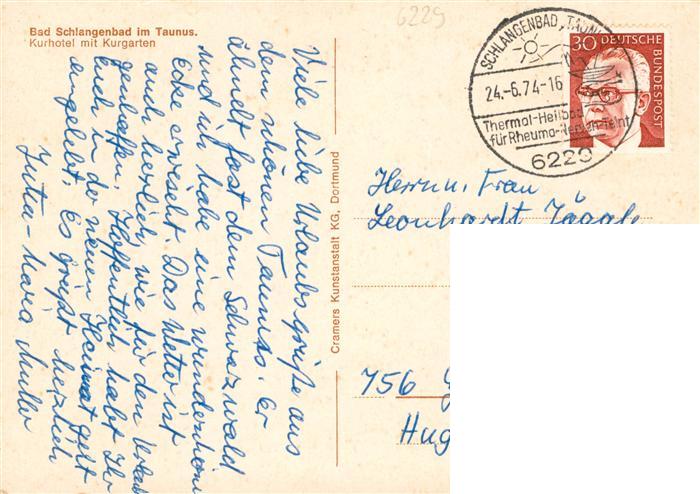 Bad Schlangenbad im Taunus.
Kurhotel mit Kurgarten
6229
SCHLANGENBAD, TAUNUS
24.-6.74-16
Thermal-Heilbad
für Rheuma-Nerven-Teint
6229
30 DEUTSCHE
BUNDESPOST
Viele liebe Urlaubsgrüße aus
dem schönen Taunus. Er
ähnelt fast dem Schwarzwald
und ich habe eine wunderschöne
Ecke erwischt. Das Wetter ist
auch herrlich, wie für den Urlaub
geschaffen. Hoffentlich habt Ihr
Euch in der neuen Heimat gut
eingelebt. Es grüßt herzlich
Jutta-Maria Müller
Cramers Kunstanstalt KG, Dortmund
Herrn u. Frau
Leonhardt Jäggle
756
Hug